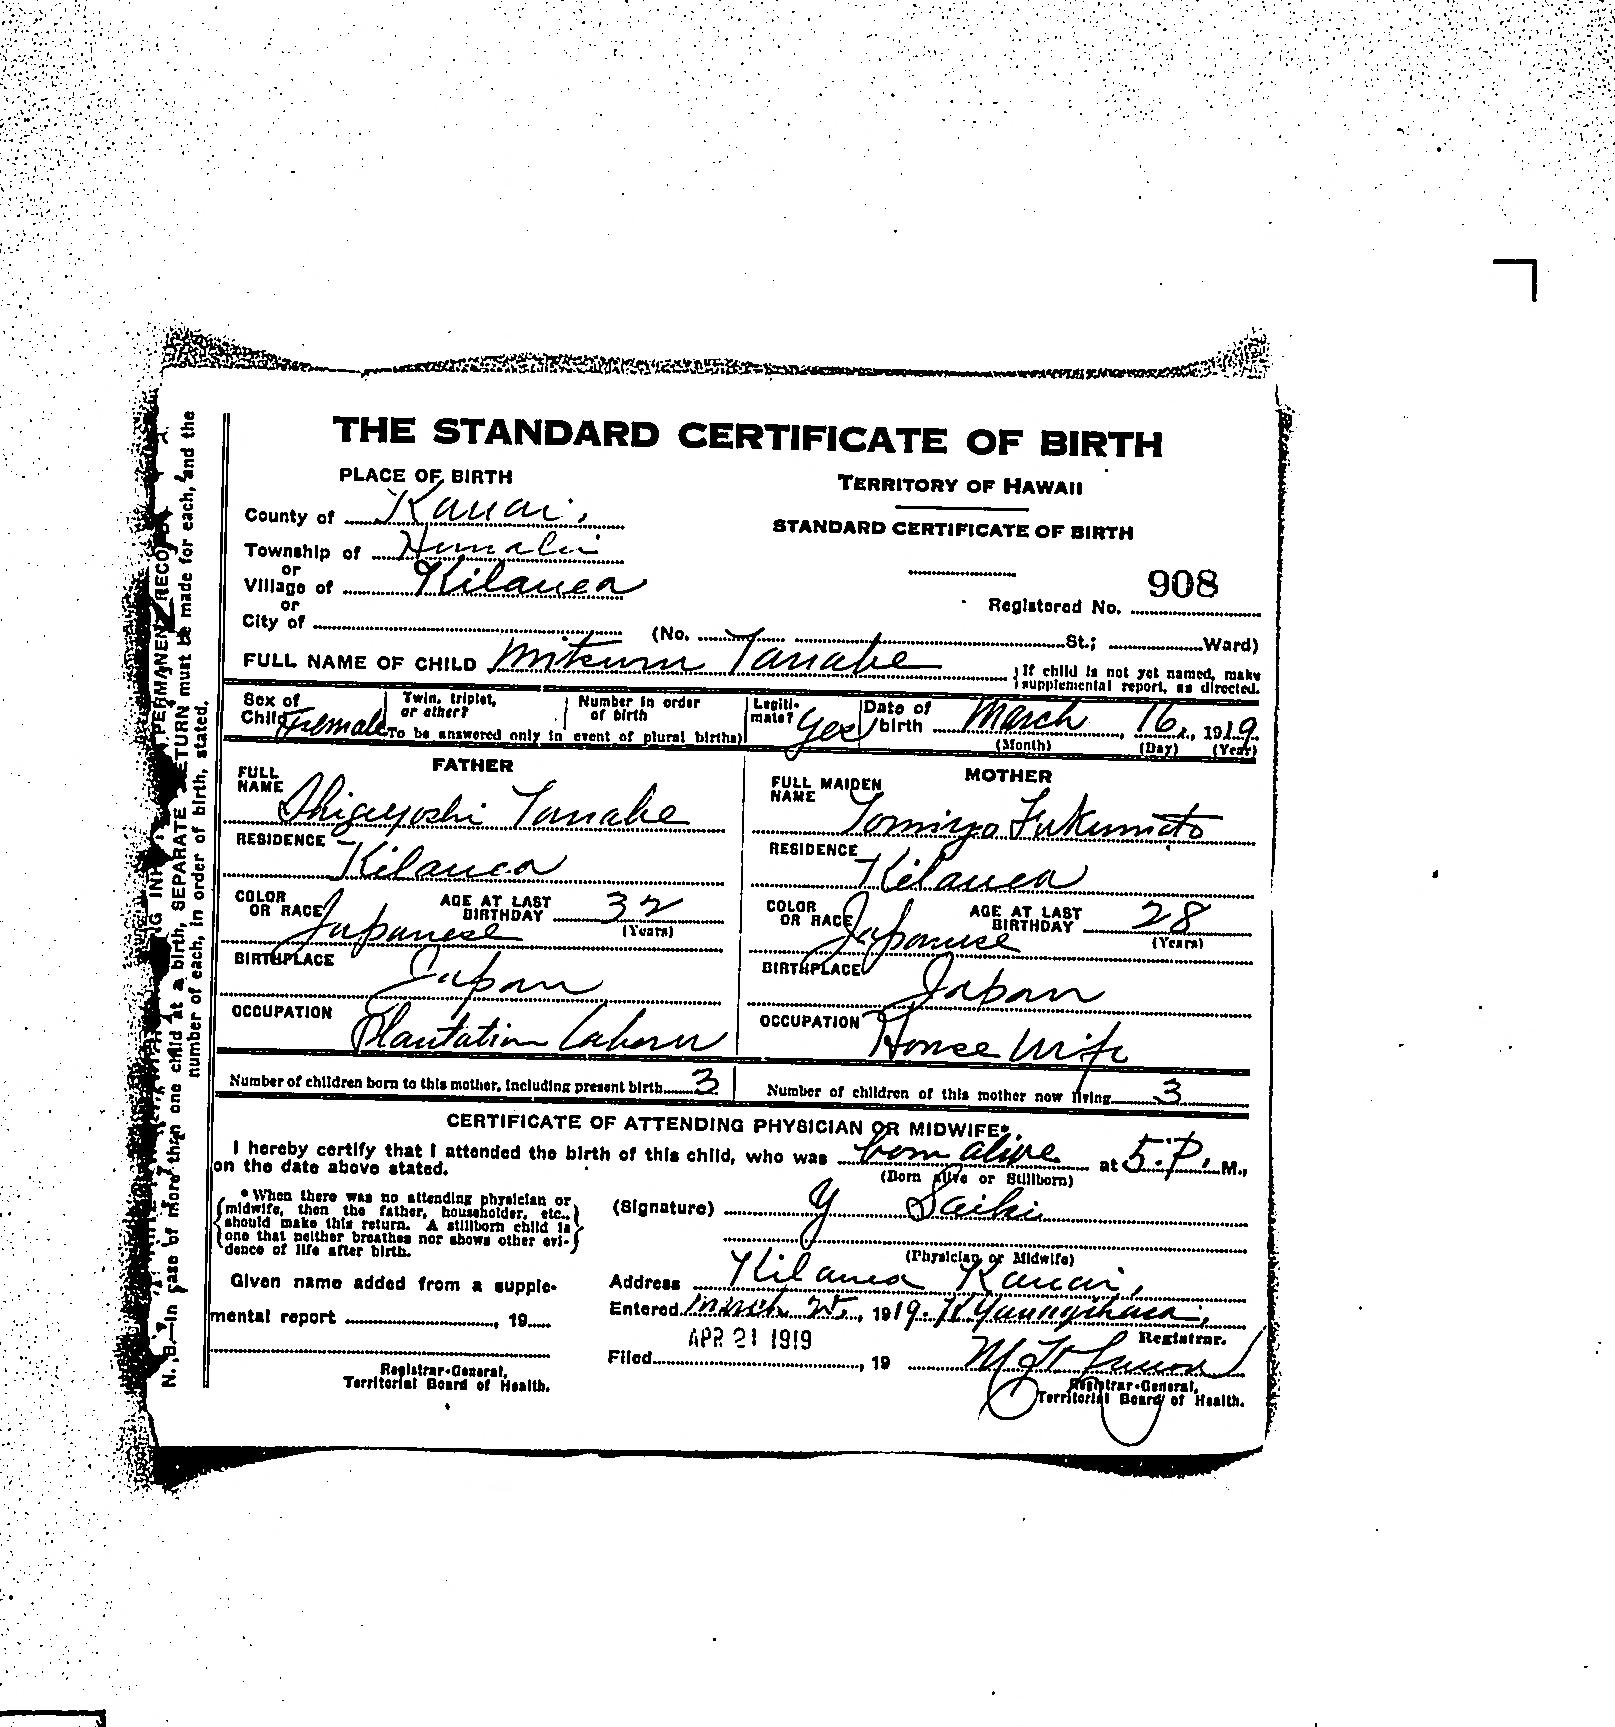 THE STANDARD CERTIFICATE OF BIRTH
PLACE OF BIRTH
TERRITORY OF HAWAII
STANDARD CERTIFICATE OF BIRTH
County of Kauai.
Township of
or
Village of Kilauea
or
City of (No. St.; Ward)
Registered No. 908
FULL NAME OF CHILD Tanabe
If child is not yet named, make
supplemental report, as directed.
Sex of Child Female
Twin, triplet, or other?
Number in order of birth
To be answered only in event of plural births)
Legitimate? Yes
Date of birth March 16, 1919.
(Month) (Day) (Year)
FATHER
FULL NAME Shigeyoshi Tanabe
RESIDENCE Kilauea
COLOR OR RACE Japanese
AGE AT LAST BIRTHDAY 32
(Years)
BIRTHPLACE Japan
OCCUPATION Plantation Laborer
MOTHER
FULL MAIDEN NAME Tomiyo Fukumoto
RESIDENCE Kilauea
COLOR OR RACE Japanese
AGE AT LAST BIRTHDAY 28
(Years)
BIRTHPLACE Japan
OCCUPATION House Wife
Number of children born to this mother, including present birth 3
Number of children of this mother now living 3
CERTIFICATE OF ATTENDING PHYSICIAN OR MIDWIFE*
I hereby certify that I attended the birth of this child, who was born alive at 5.P. M.,
on the date above stated.
(Born alive or Stillborn)
* When there was no attending physician or
midwife, then the father, householder, etc.,
should make this return. A stillborn child is
one that neither breathes nor shows other evi-
dence of life after birth.
(Signature) Y Saiki
(Physician or Midwife)
Given name added from a supple-
mental report , 19
Registrar-General,
Territorial Board of Health.
Address Kilauea Kauai,
Entered March , 1919.
Registrar.
APR 21 1919
Filed , 19
Registrar-General,
Territorial Board of Health.
In case of more than one child at a birth, SEPARATE RETURN must be made for each, and the
number of each, in order of birth, stated.